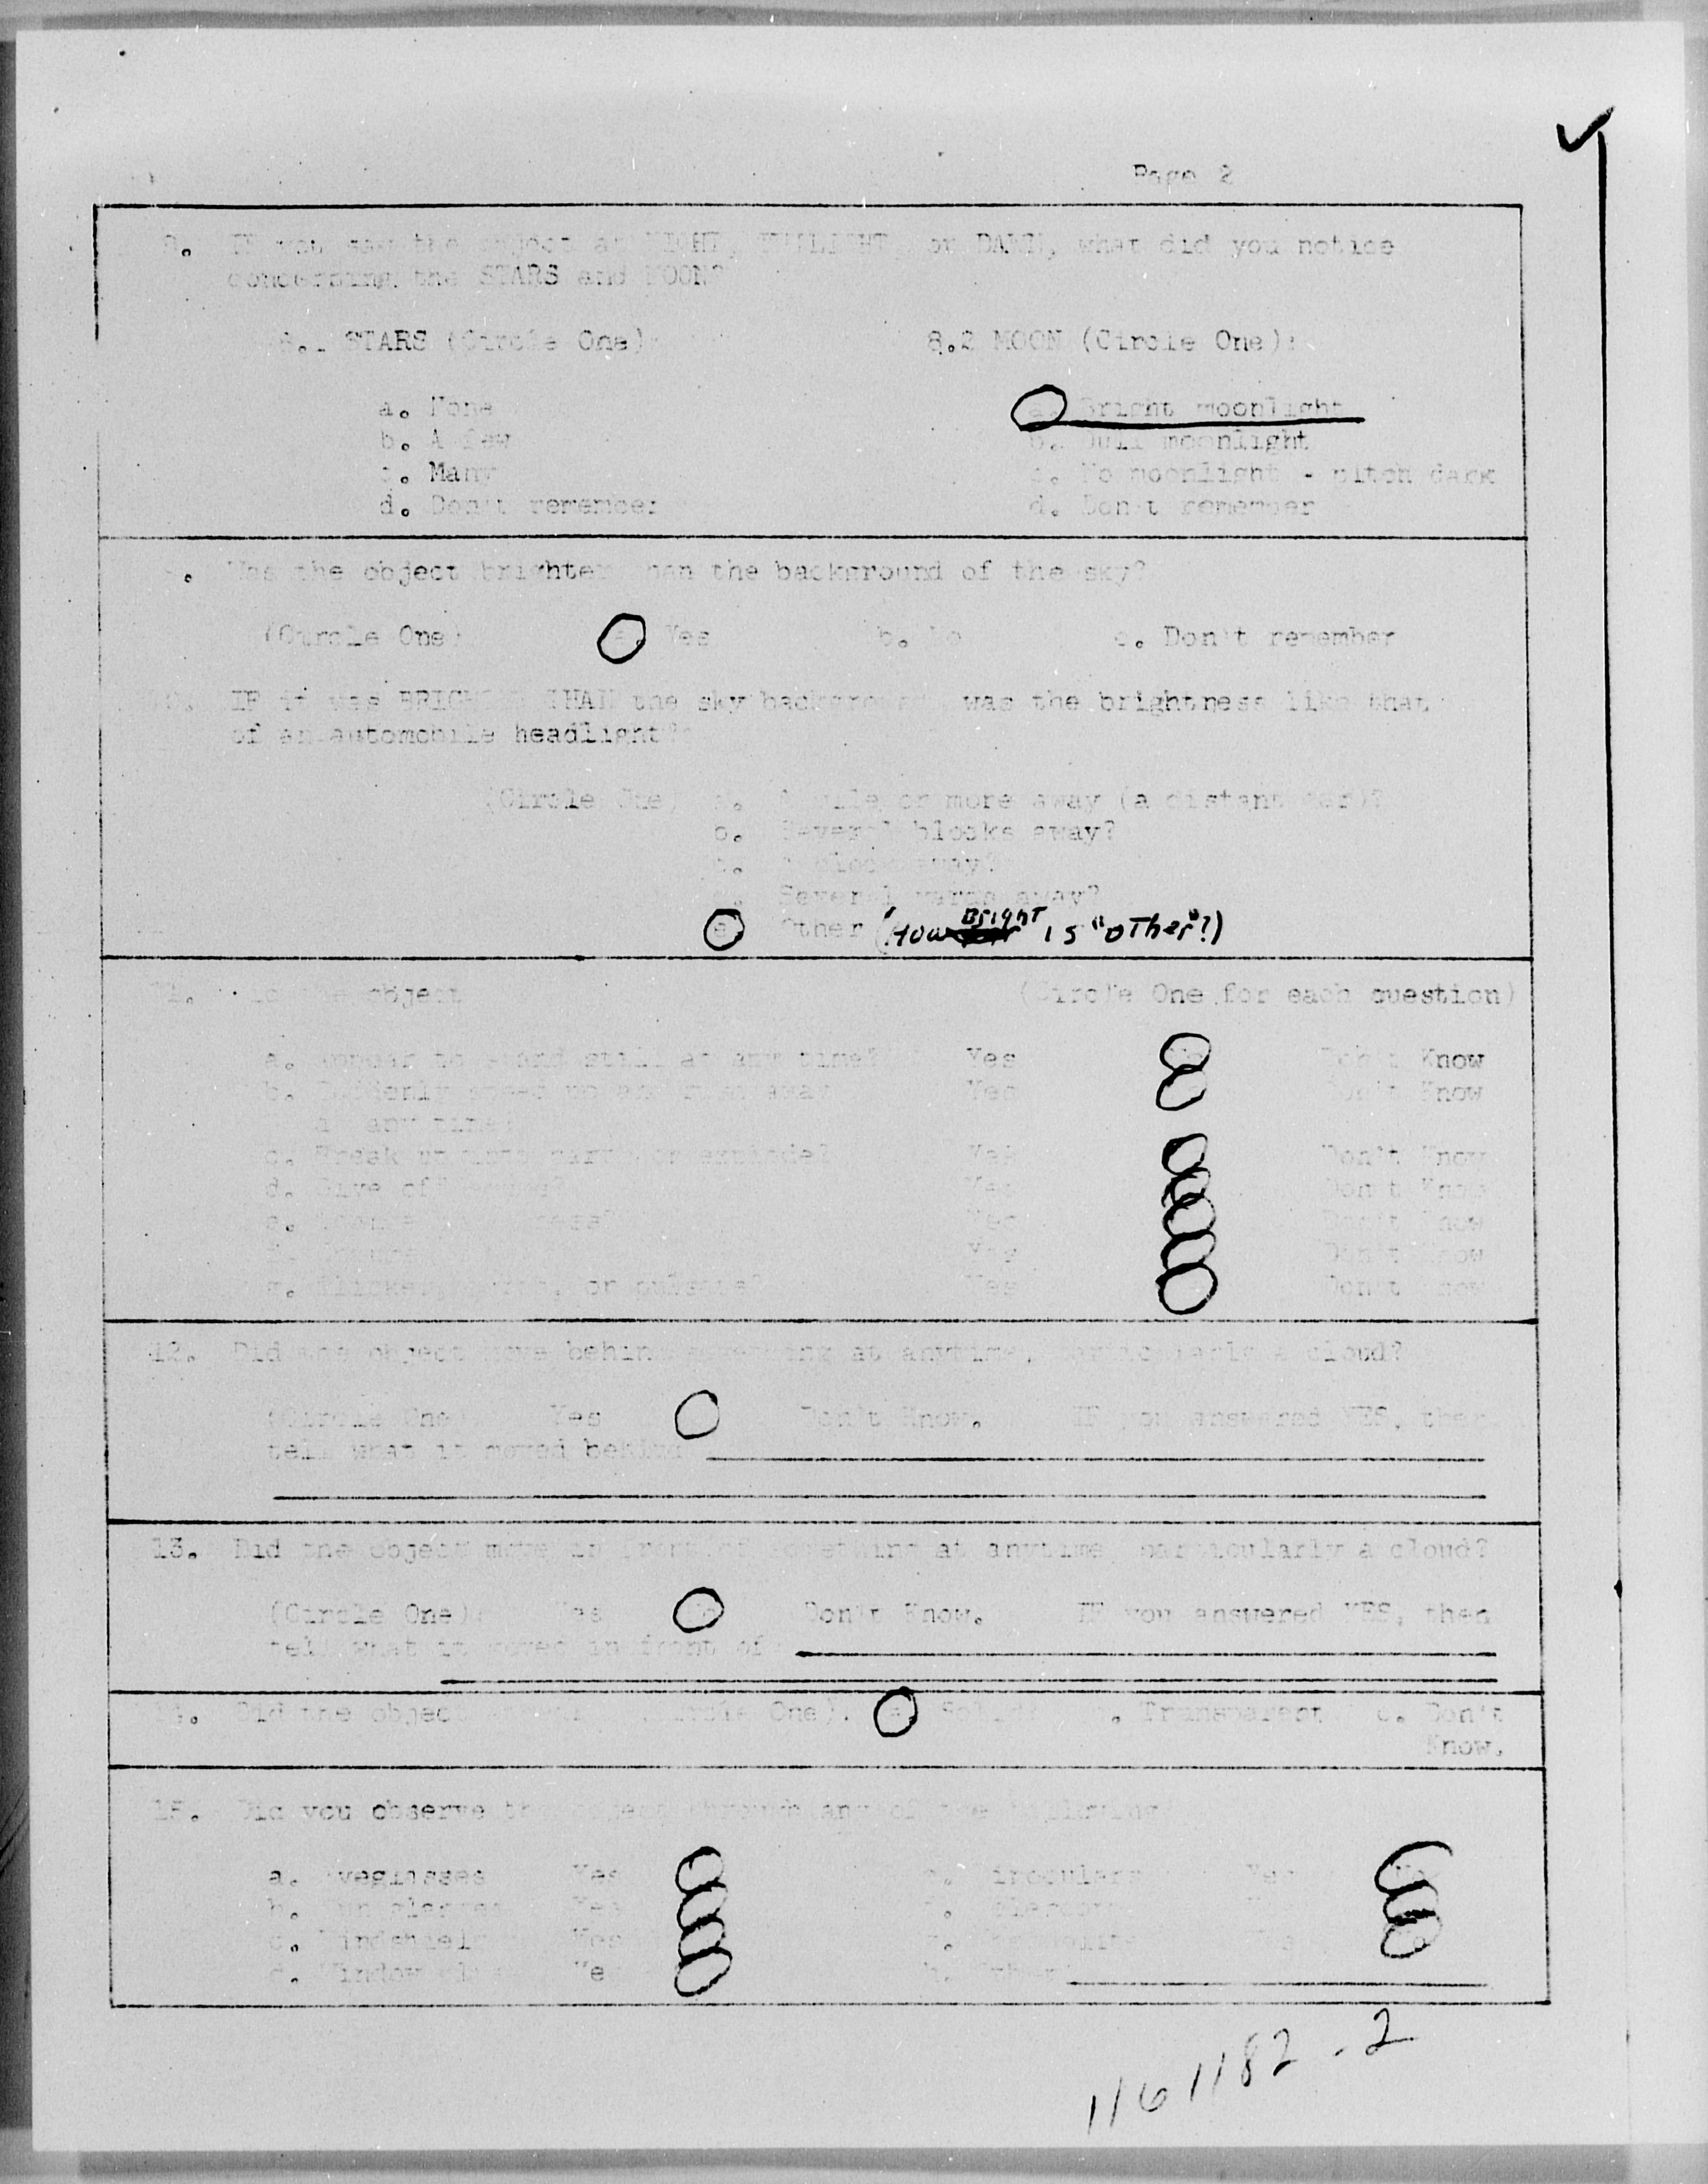 Page 2
8. IF you saw the object at NIGHT, TWILIGHT, or DAWN, what did you notice
concerning the STARS and MOON?
8.1 STARS (Circle One): 8.2 MOON (Circle One):
a. None a. Bright moonlight
b. A few b. Dull moonlight
c. Many c. No moonlight - pitch dark
d. Don't remember d. Don't remember
. Was the object brighter than the background of the sky?
(Circle One) a. Yes b. No c. Don't remember
10. IF it was BRIGHTER THAN the sky background, was the brightness like that
of an automobile headlight?
(Circle One) a. A mile or more away (a distant car)?
b. Several blocks away?
c. A block away?
d. Several yards away?
e. Other (How Bright is "other"?)
11. Did the object (Circle One for each question)
a. Appear to stand still at any time? Yes Don't Know
b. Suddenly speed up and run away Yes Don't Know
at any time?
c. Break up into parts or explode? Yes Don't Know
d. Give off smoke? Yes Don't Know
e. Change brightness? Yes Don't Know
Yes Don't Know
g. Flicker, throb, or pulsate? Yes Don't Know
12. Did the object move behind something at anytime, particularly a cloud?
(Circle One) Yes Don't Know. IF you answered YES, then
tell what it moved behind
13. Did the object move in front of something at anytime, particularly a cloud?
(Circle One) Yes Don't Know. IF you answered YES, then
tell what it moved in front of
14. Did the object appear: (Circle One): a. Solid b. Transparent c. Don't
Know.
15. Did you observe the object through any of the following
a. Eyeglasses Yes e. Binoculars Yes No
b. Sun glasses Yes f. Telescope
c. Windshield Yes g. Theodolite Yes
d. Window glass Yes h. Other
1161182-2